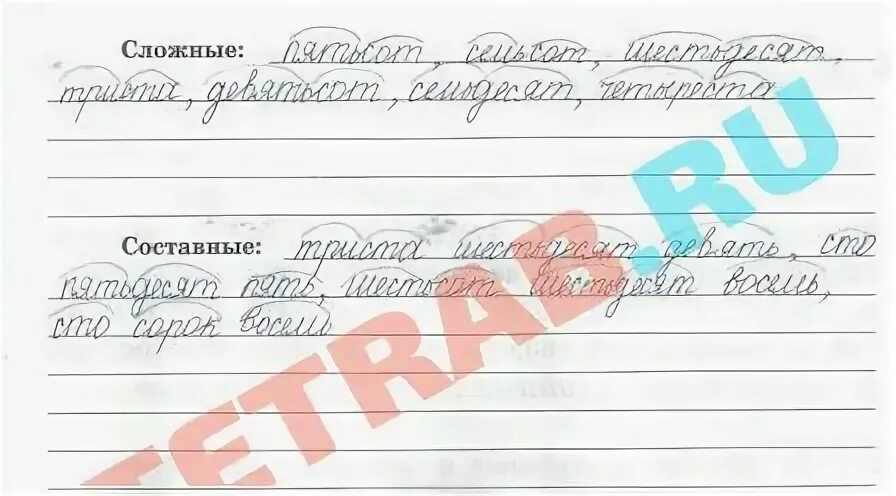 Сложные: пятьсот, семьсот, шестьдесят,
триста, девятьсот, семьдесят, четыреста
Составные: триста шестьдесят девять, сто
пятьдесят пять, шестьсот шестьдесят восемь,
сто сорок восемь
TETRAB.RU